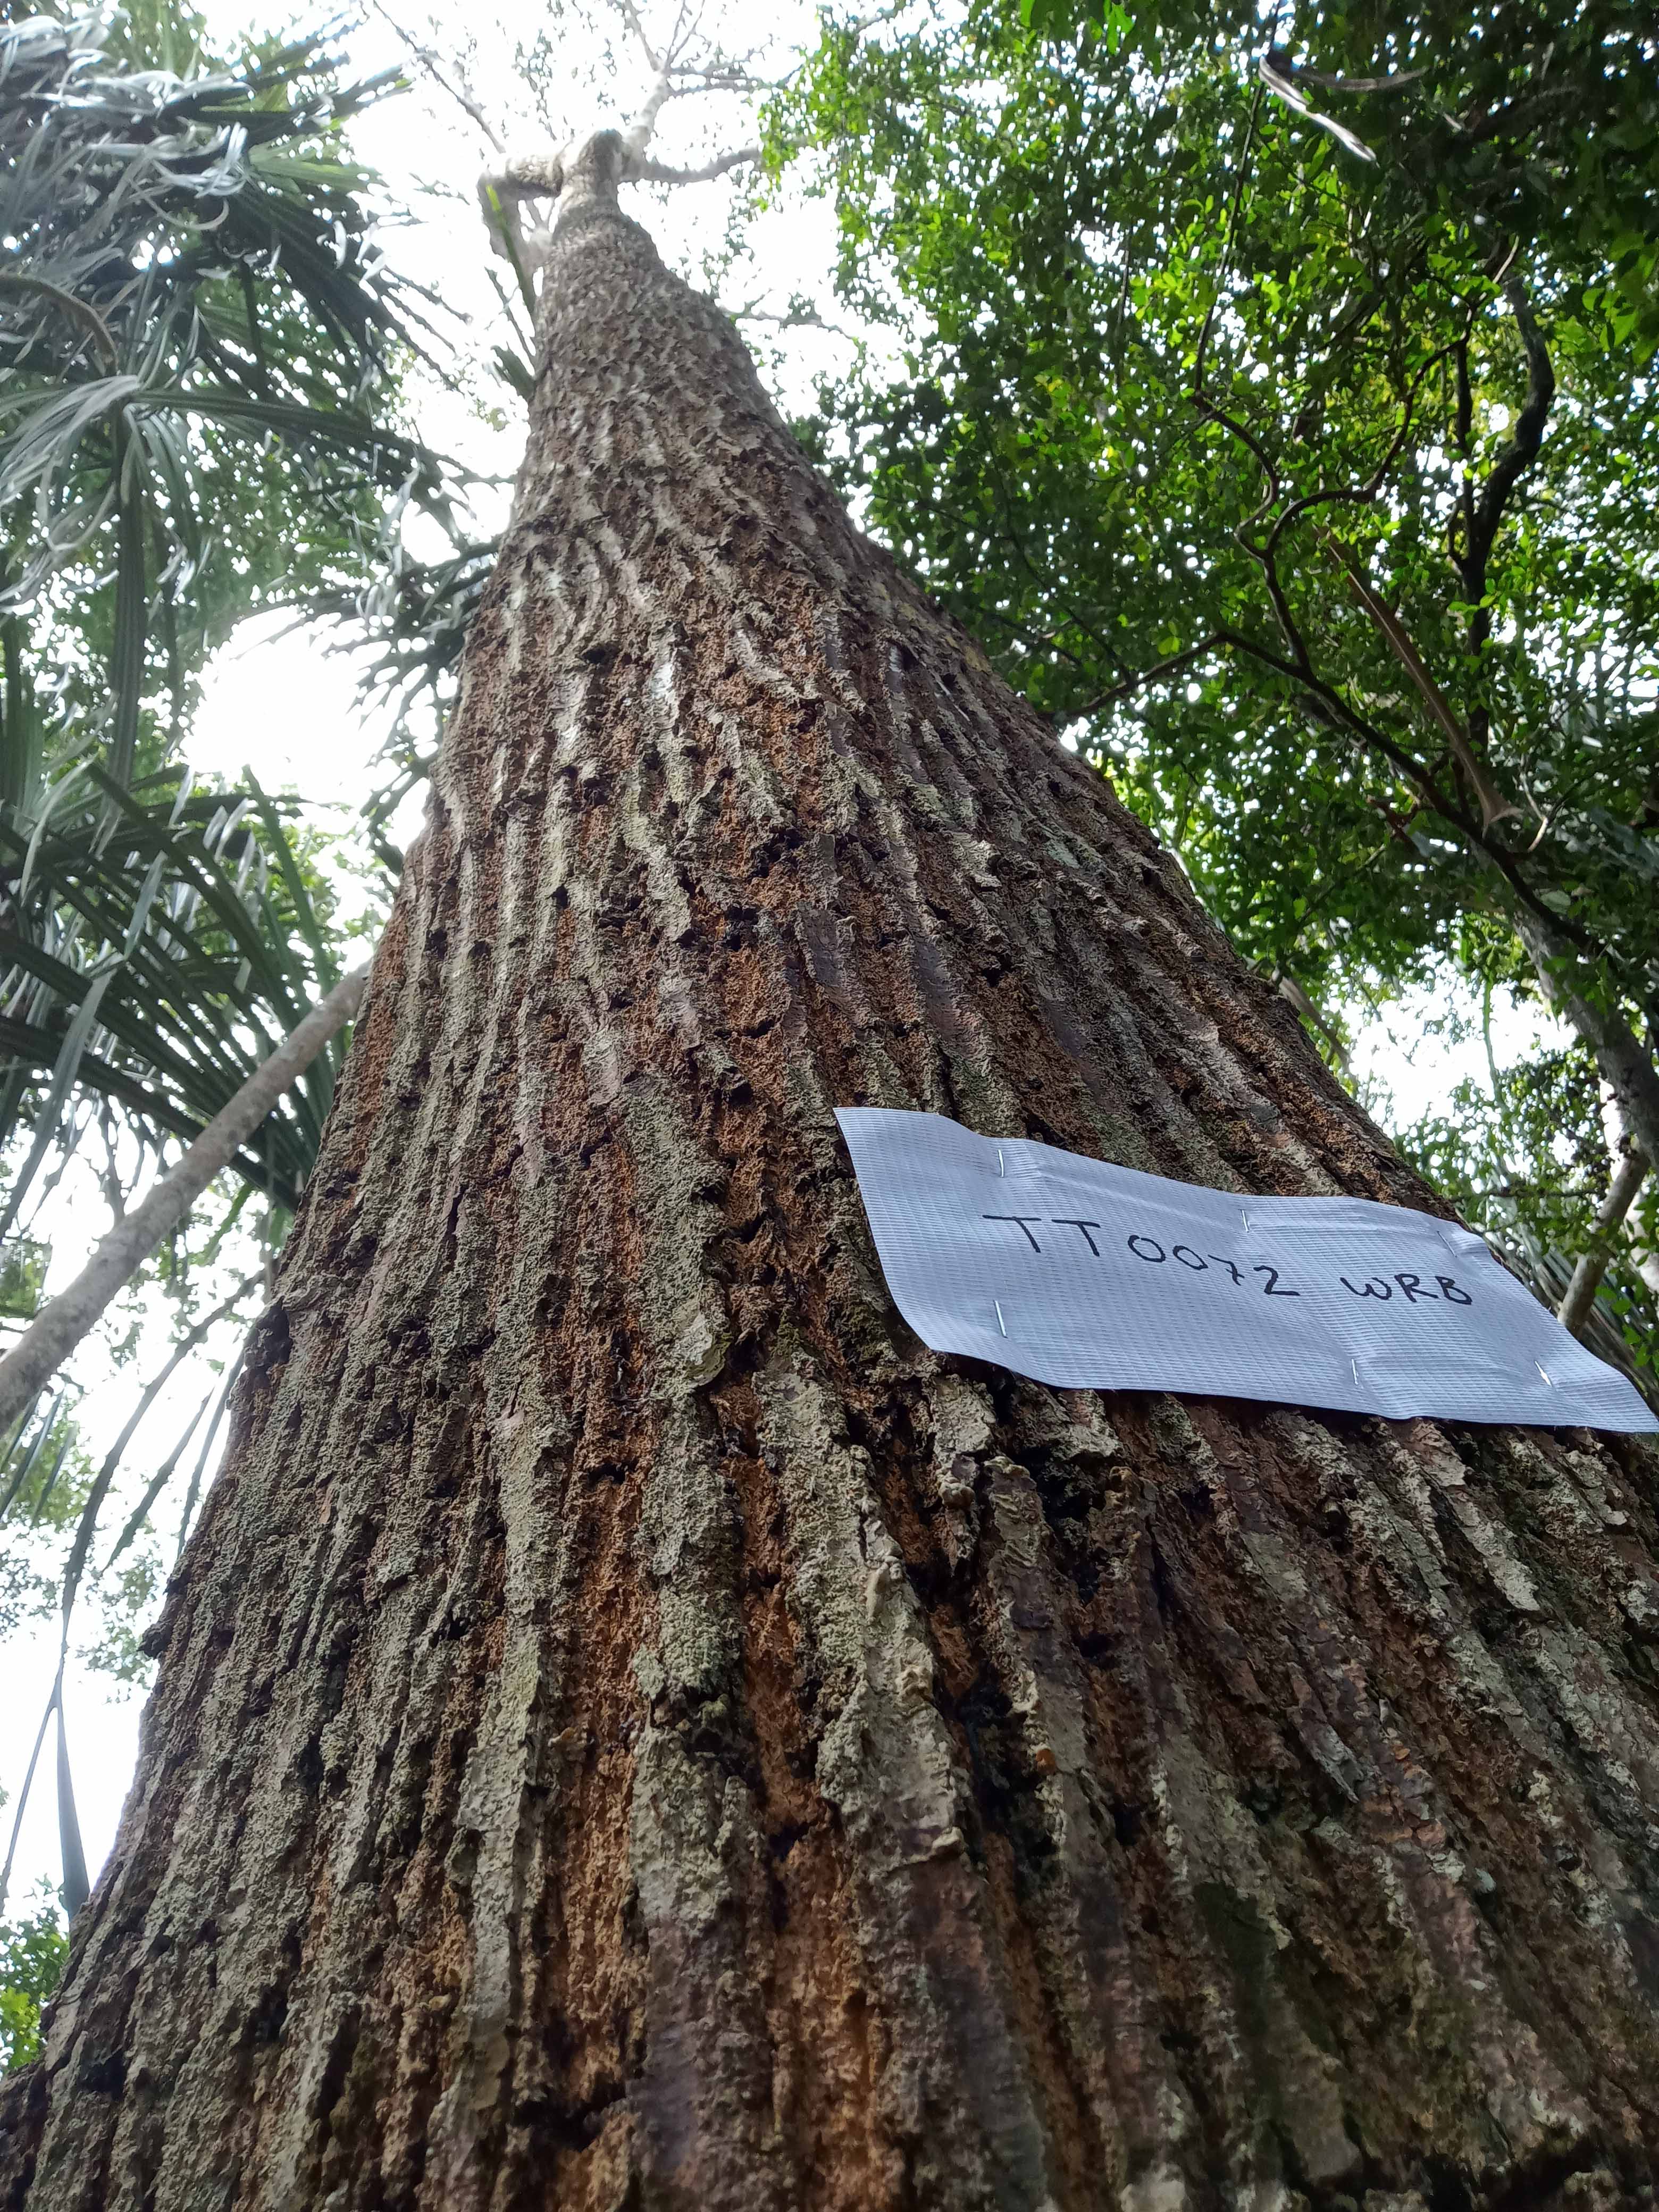 TT0072 WRB